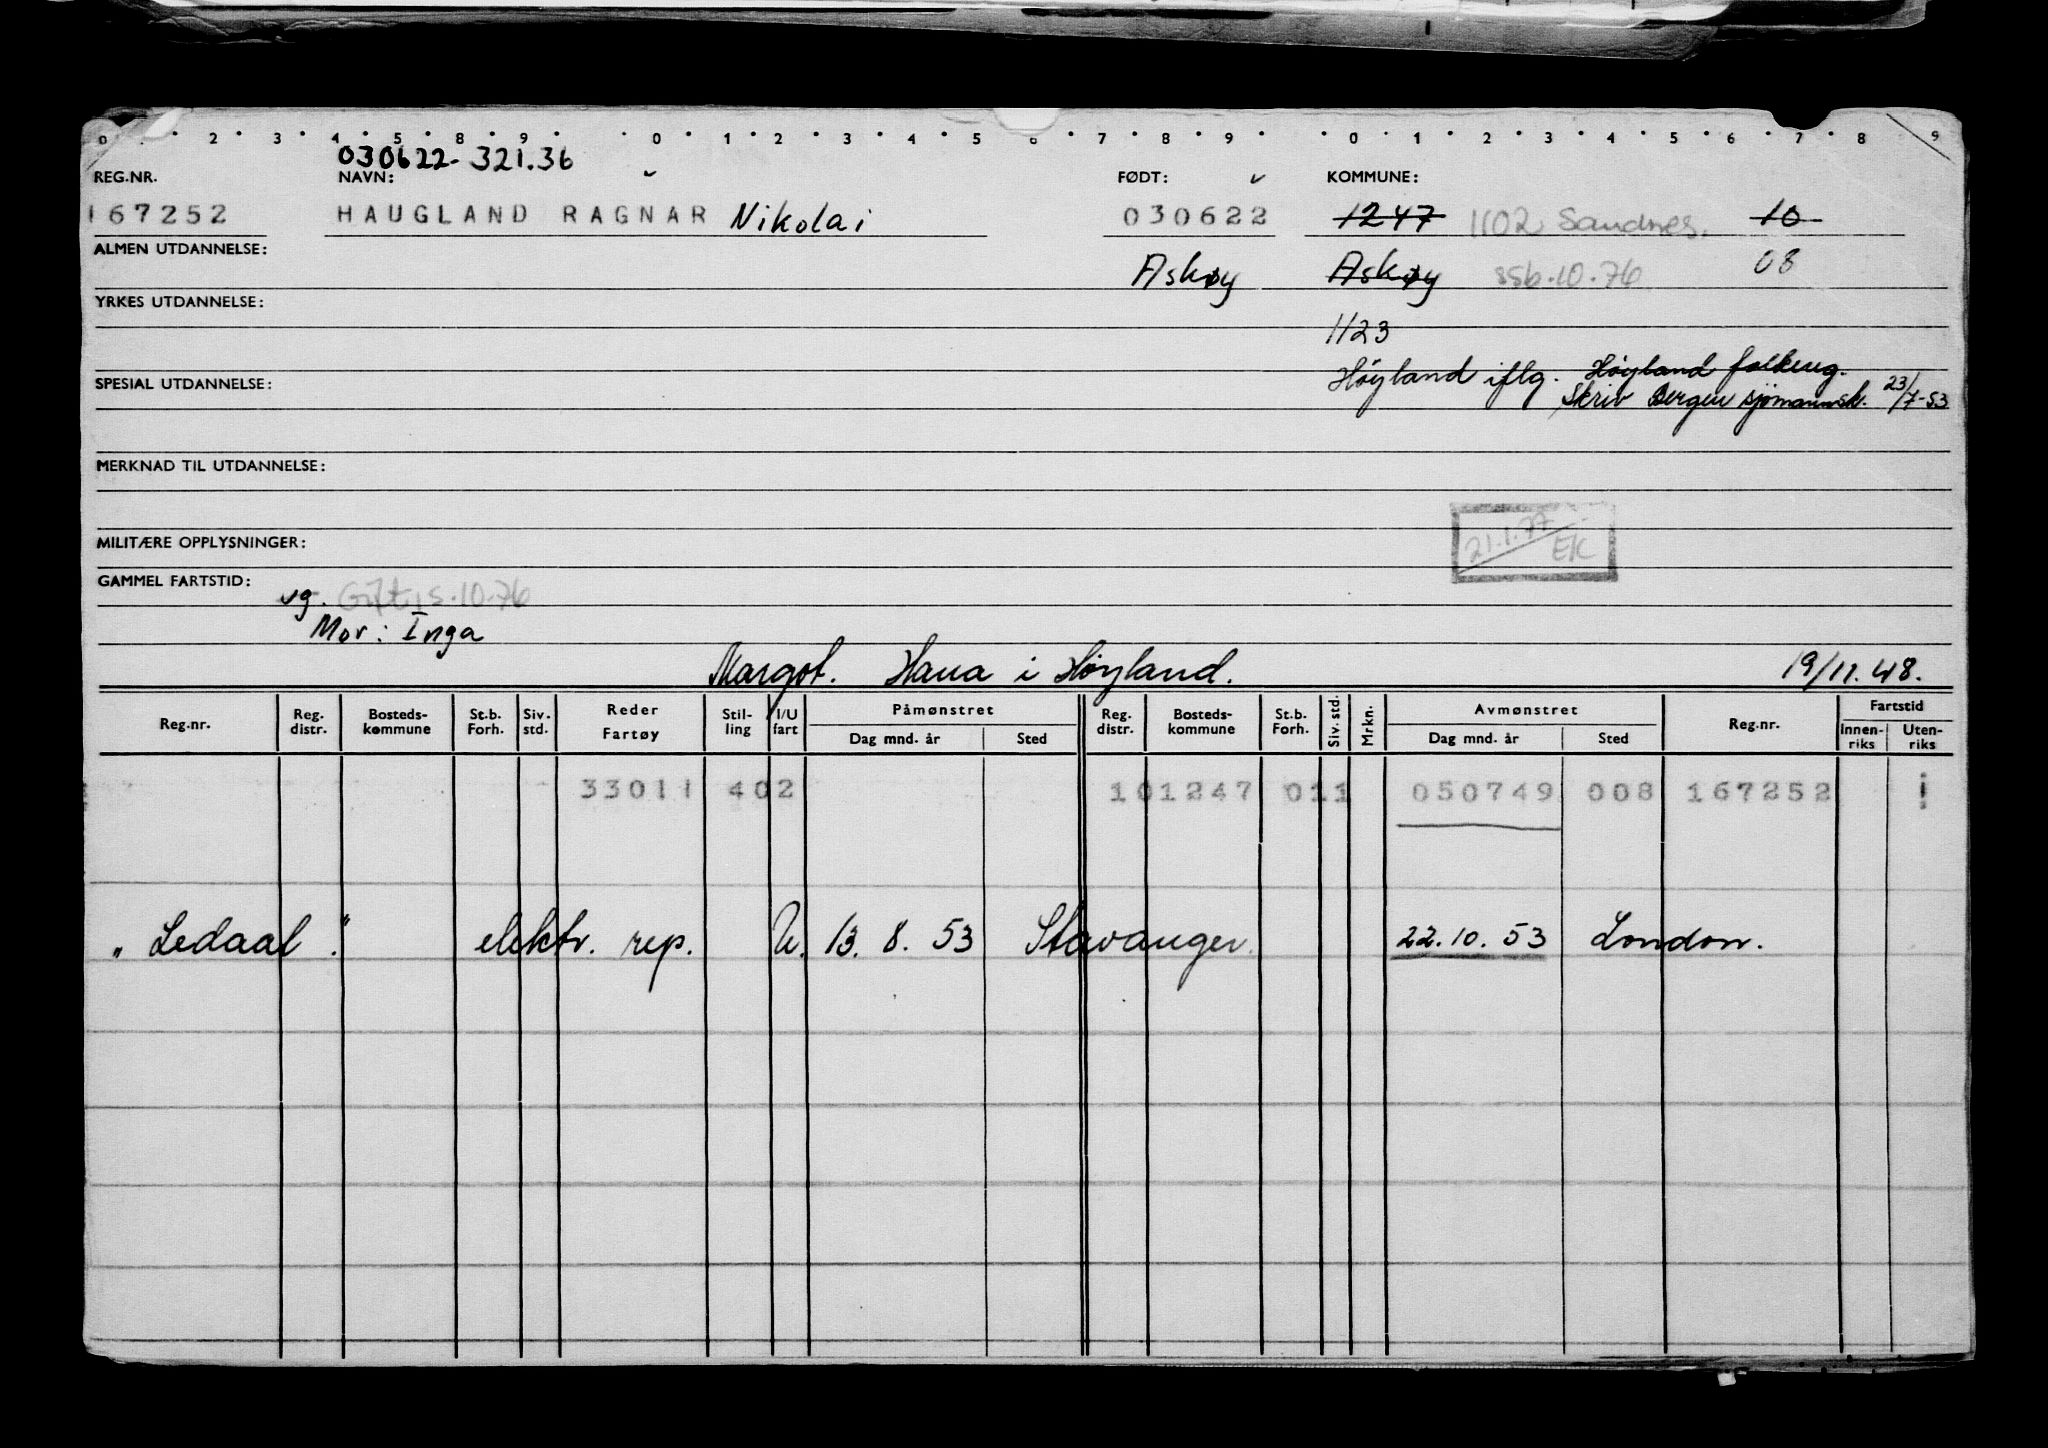 0 . 2 3 4 5 8 9 0 1 2 3 4 5 6 7 8 9 0 1 2 3 4 5 6 7 8 9
030622-321.36
REG.NR. NAVN: FØDT: KOMMUNE:
167252 HAUGLAND RAGNAR Nikolai 030622 1247 1102 Sandnes. 10
ALMEN UTDANNELSE: Askøy Askøy ssb.10.76 08
YRKES UTDANNELSE:
1123
Høyland iflg. Høyland folkereg.
SPESIAL UTDANNELSE: Skriv Bergen sjømannsk. 23/7-53
MERKNAD TIL UTDANNELSE:
21.1.77 EK
MILITÆRE OPPLYSNINGER:
GAMMEL FARTSTID:
ug. Gift, s.10.76
Mor: Inga
Margot. Hana i Høyland. 19/11.48.
Reg.nr. Reg. distr. Bosteds- kommune St.b. Forh. Siv. std. Reder Fartøy Stil- ling I/U fart Påmønstret Dag mnd. år Sted Reg. distr. Bosteds- kommune St.b. Forh. Siv. std. Mrkn. Avmønstret Dag mnd. år Sted Reg.nr. Fartstid Innen- riks Uten- riks
33011 402 101247 011 050749 008 167252
„Ledaal". elektr. rep. U. 13. 8. 53 Stavanger. 22.10.53 London.